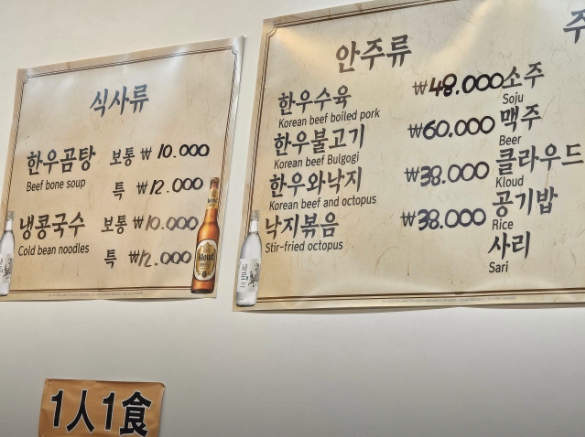 식사류
한우곰탕 보통 ₩ 10.000
Beef bone soup
특 ₩ 12.000
냉콩국수 보통 ₩ 10.000
Cold bean noodles
특 ₩ 12.000
안주류
한우수육 ₩ 48.000
Korean beef boiled pork
한우불고기 ₩ 60.000
Korean beef Bulgogi
한우와낙지 ₩ 38.000
Korean beef and octopus
낙지볶음 ₩ 38.000
Stir-fried octopus
주
소주
Soju
맥주
Beer
클라우드
Kloud
공기밥
Rice
사리
Sari
Kloud
1人1食